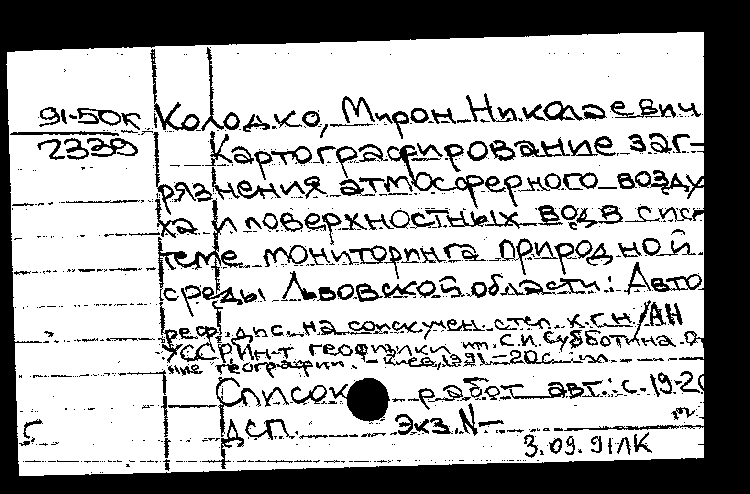 91-50К Колодко, Мирон Николаевич
2339 Картографирование заг-
рязнения атмосферного возду
ха и поверхностных вод в сис
теме мониторинга природной
среды Львовской области: Авто
реф. дис. на соиск. учен. степ. к.г.н/АН
УССР. Ин-т геофизики им. С.И. Субботина. От
ние географии. - Киев, 1991. - 20 с. ил
Список работ авт.: с. 19-20
ДСП. Экз. N-
5
3.09.91ЛК